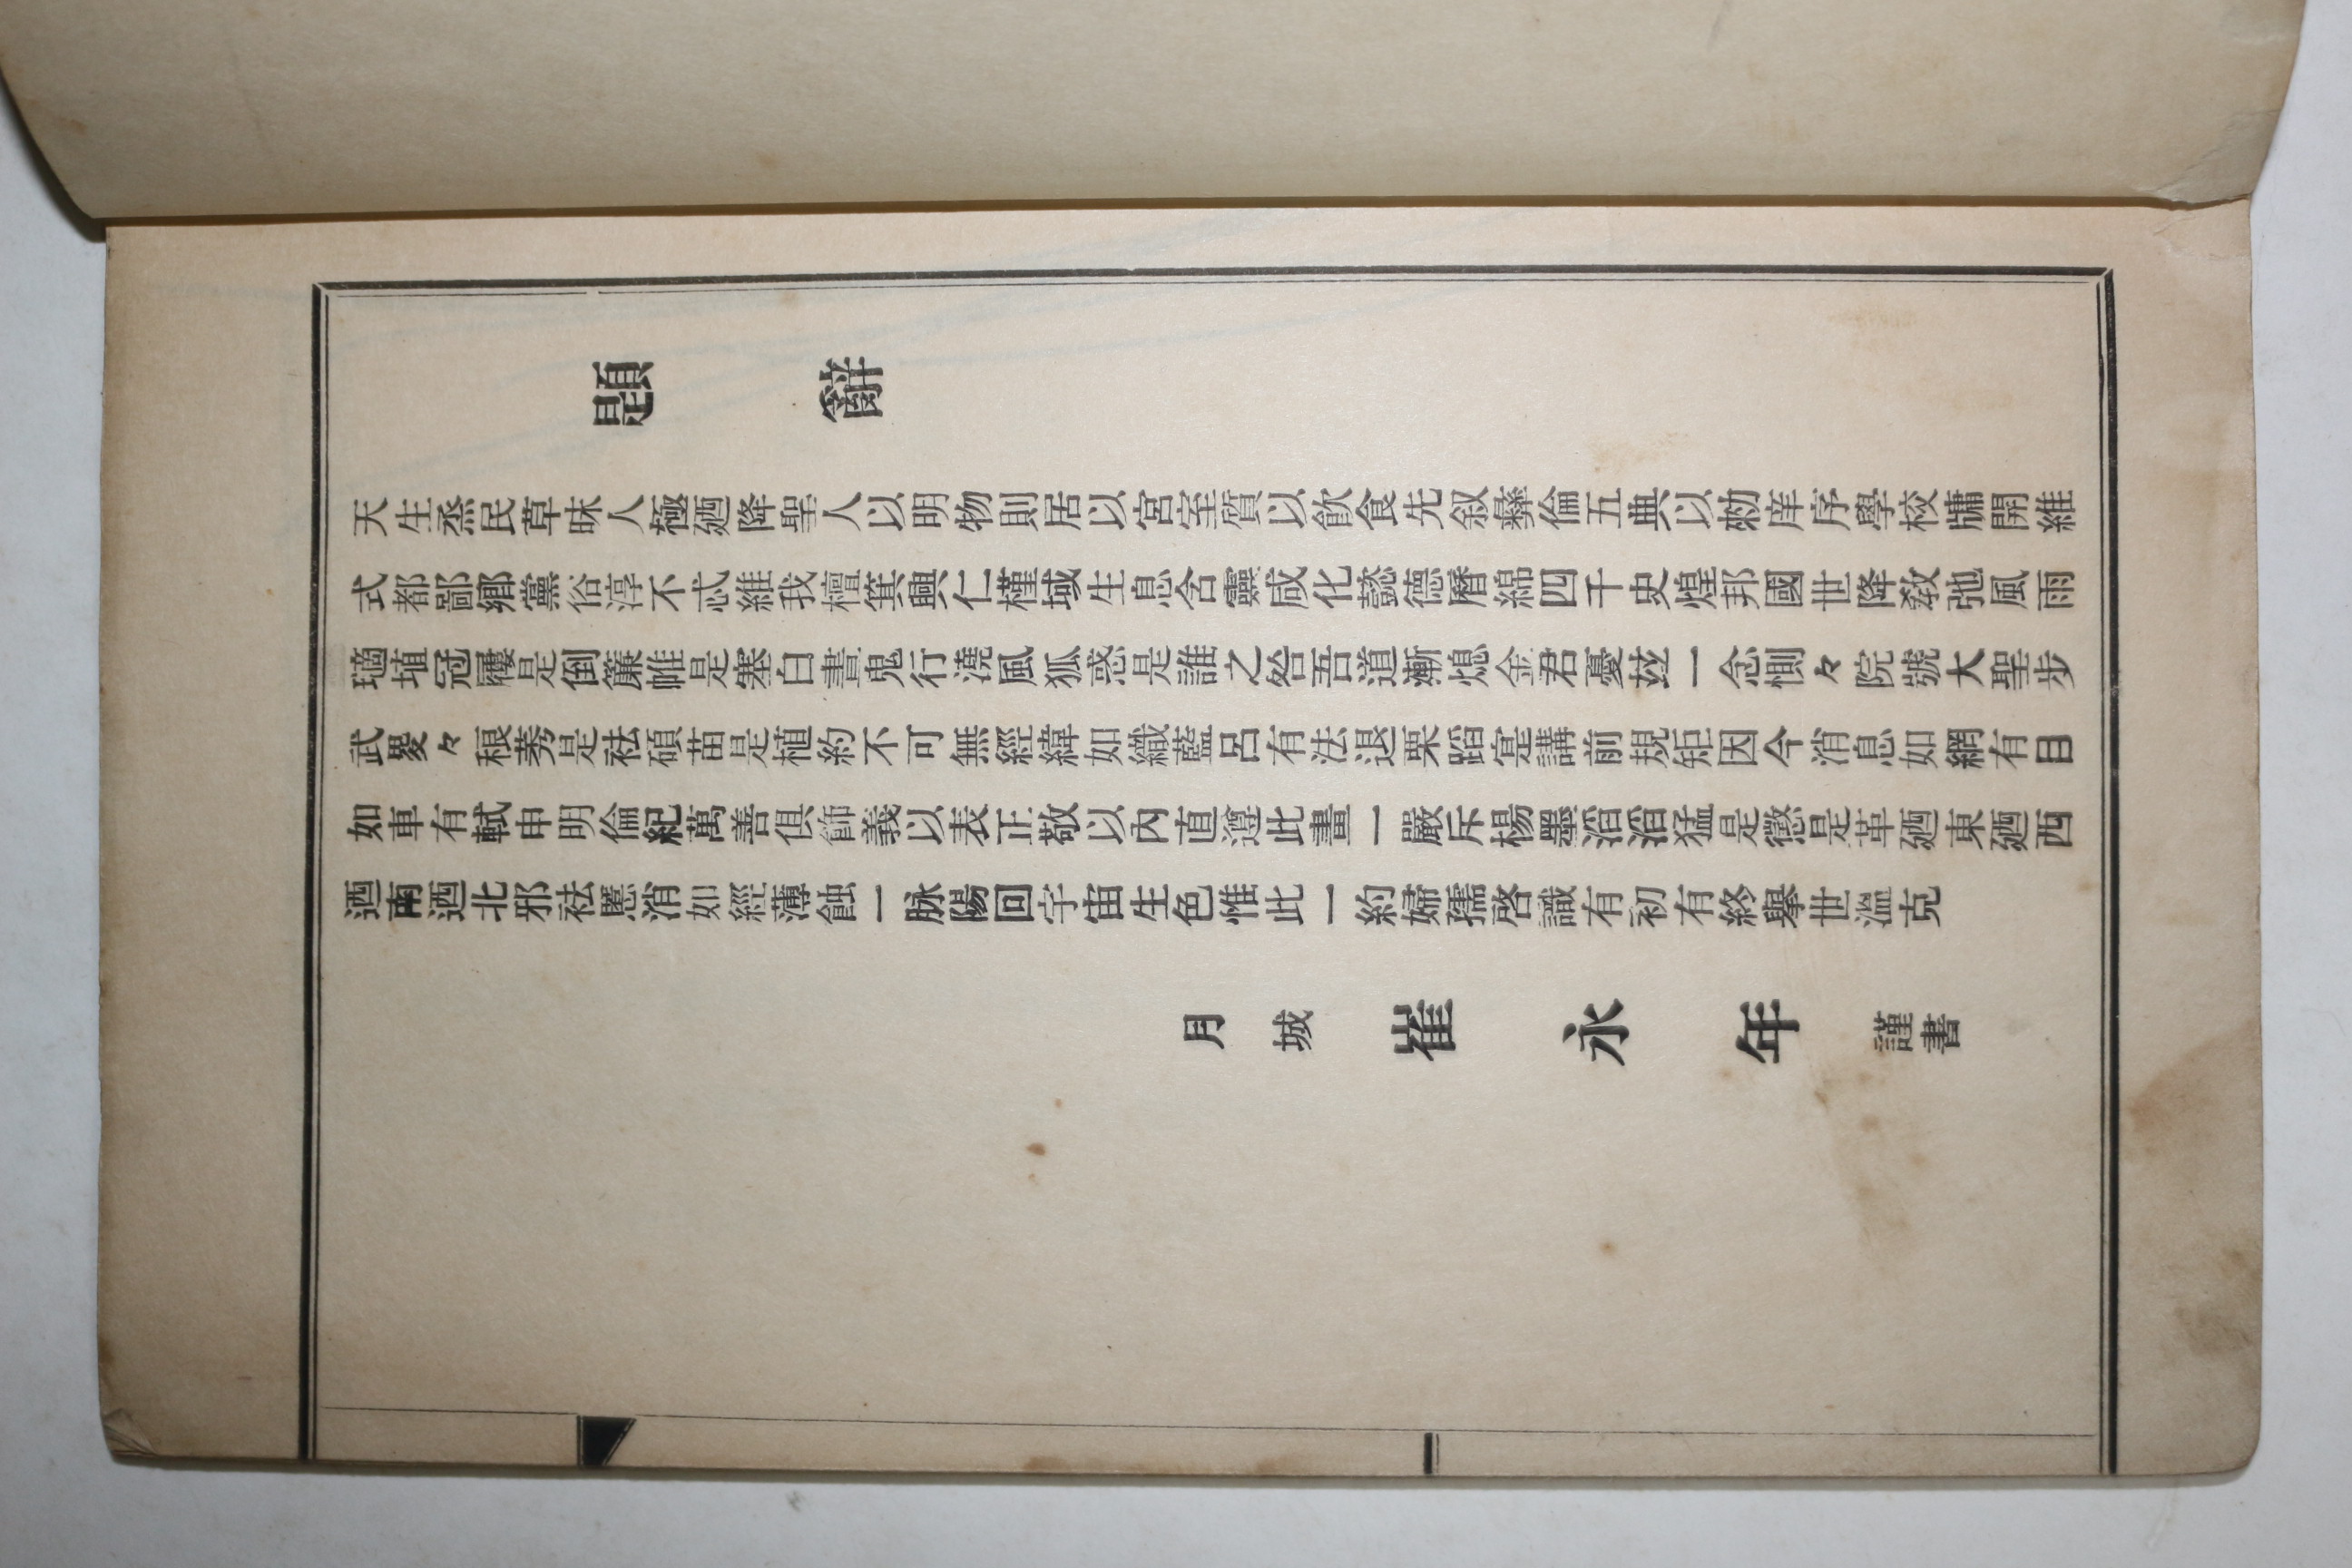 題辭
天生烝民草昧人極廼降聖人以明物則居以宮室質以飮食先叙彝倫五典以勅庠序學校牗開維
式都鄙鄕黨俗淳不忒維我檀箕興仁槿域生息含靈咸化懿德曆綿四千史煌邦國世降敎弛風雨
埴冠屨是倒簾帷是塞白晝鬼行澆風狐惑是誰之咎吾道漸熄金君憂玆一念惻々院號大聖步
武畟々稂莠是袪碩苗是植約不可無經緯如織藍呂有法退栗蹈寔講前規矩因今消息如網有目
如車有軾申明倫紀萬善俱飾義以表正敬以內直遵此畫一嚴斥楊墨滔滔猛是懲是革廼東廼西
迺南迺北邪袪慝消如經薄蝕一脉陽回宇宙生色惟此一約婦孺啓識有初有終擧世溫克
月城 崔永年 謹書